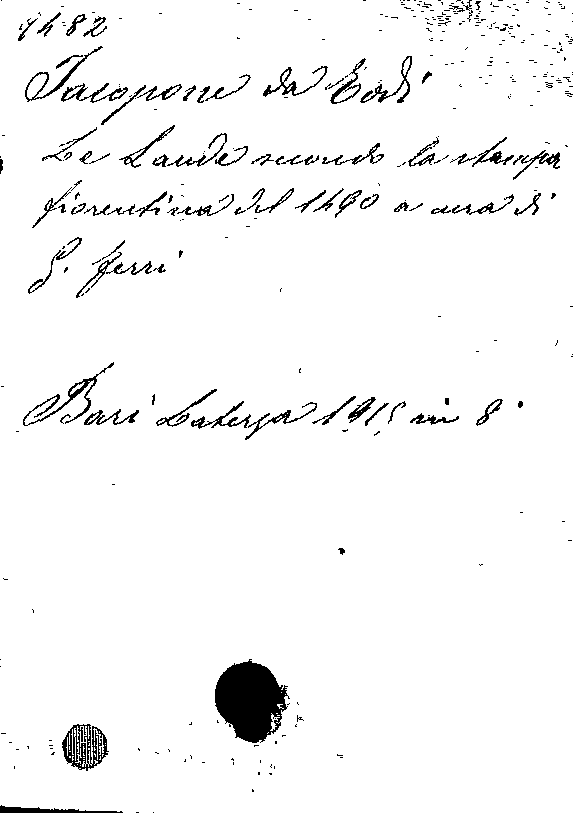 9482
Jacopone da Todi
Le Laude secondo la stampa
fiorentina del 1490 a cura di
G. Ferri
Bari Laterza 1915 in 8°